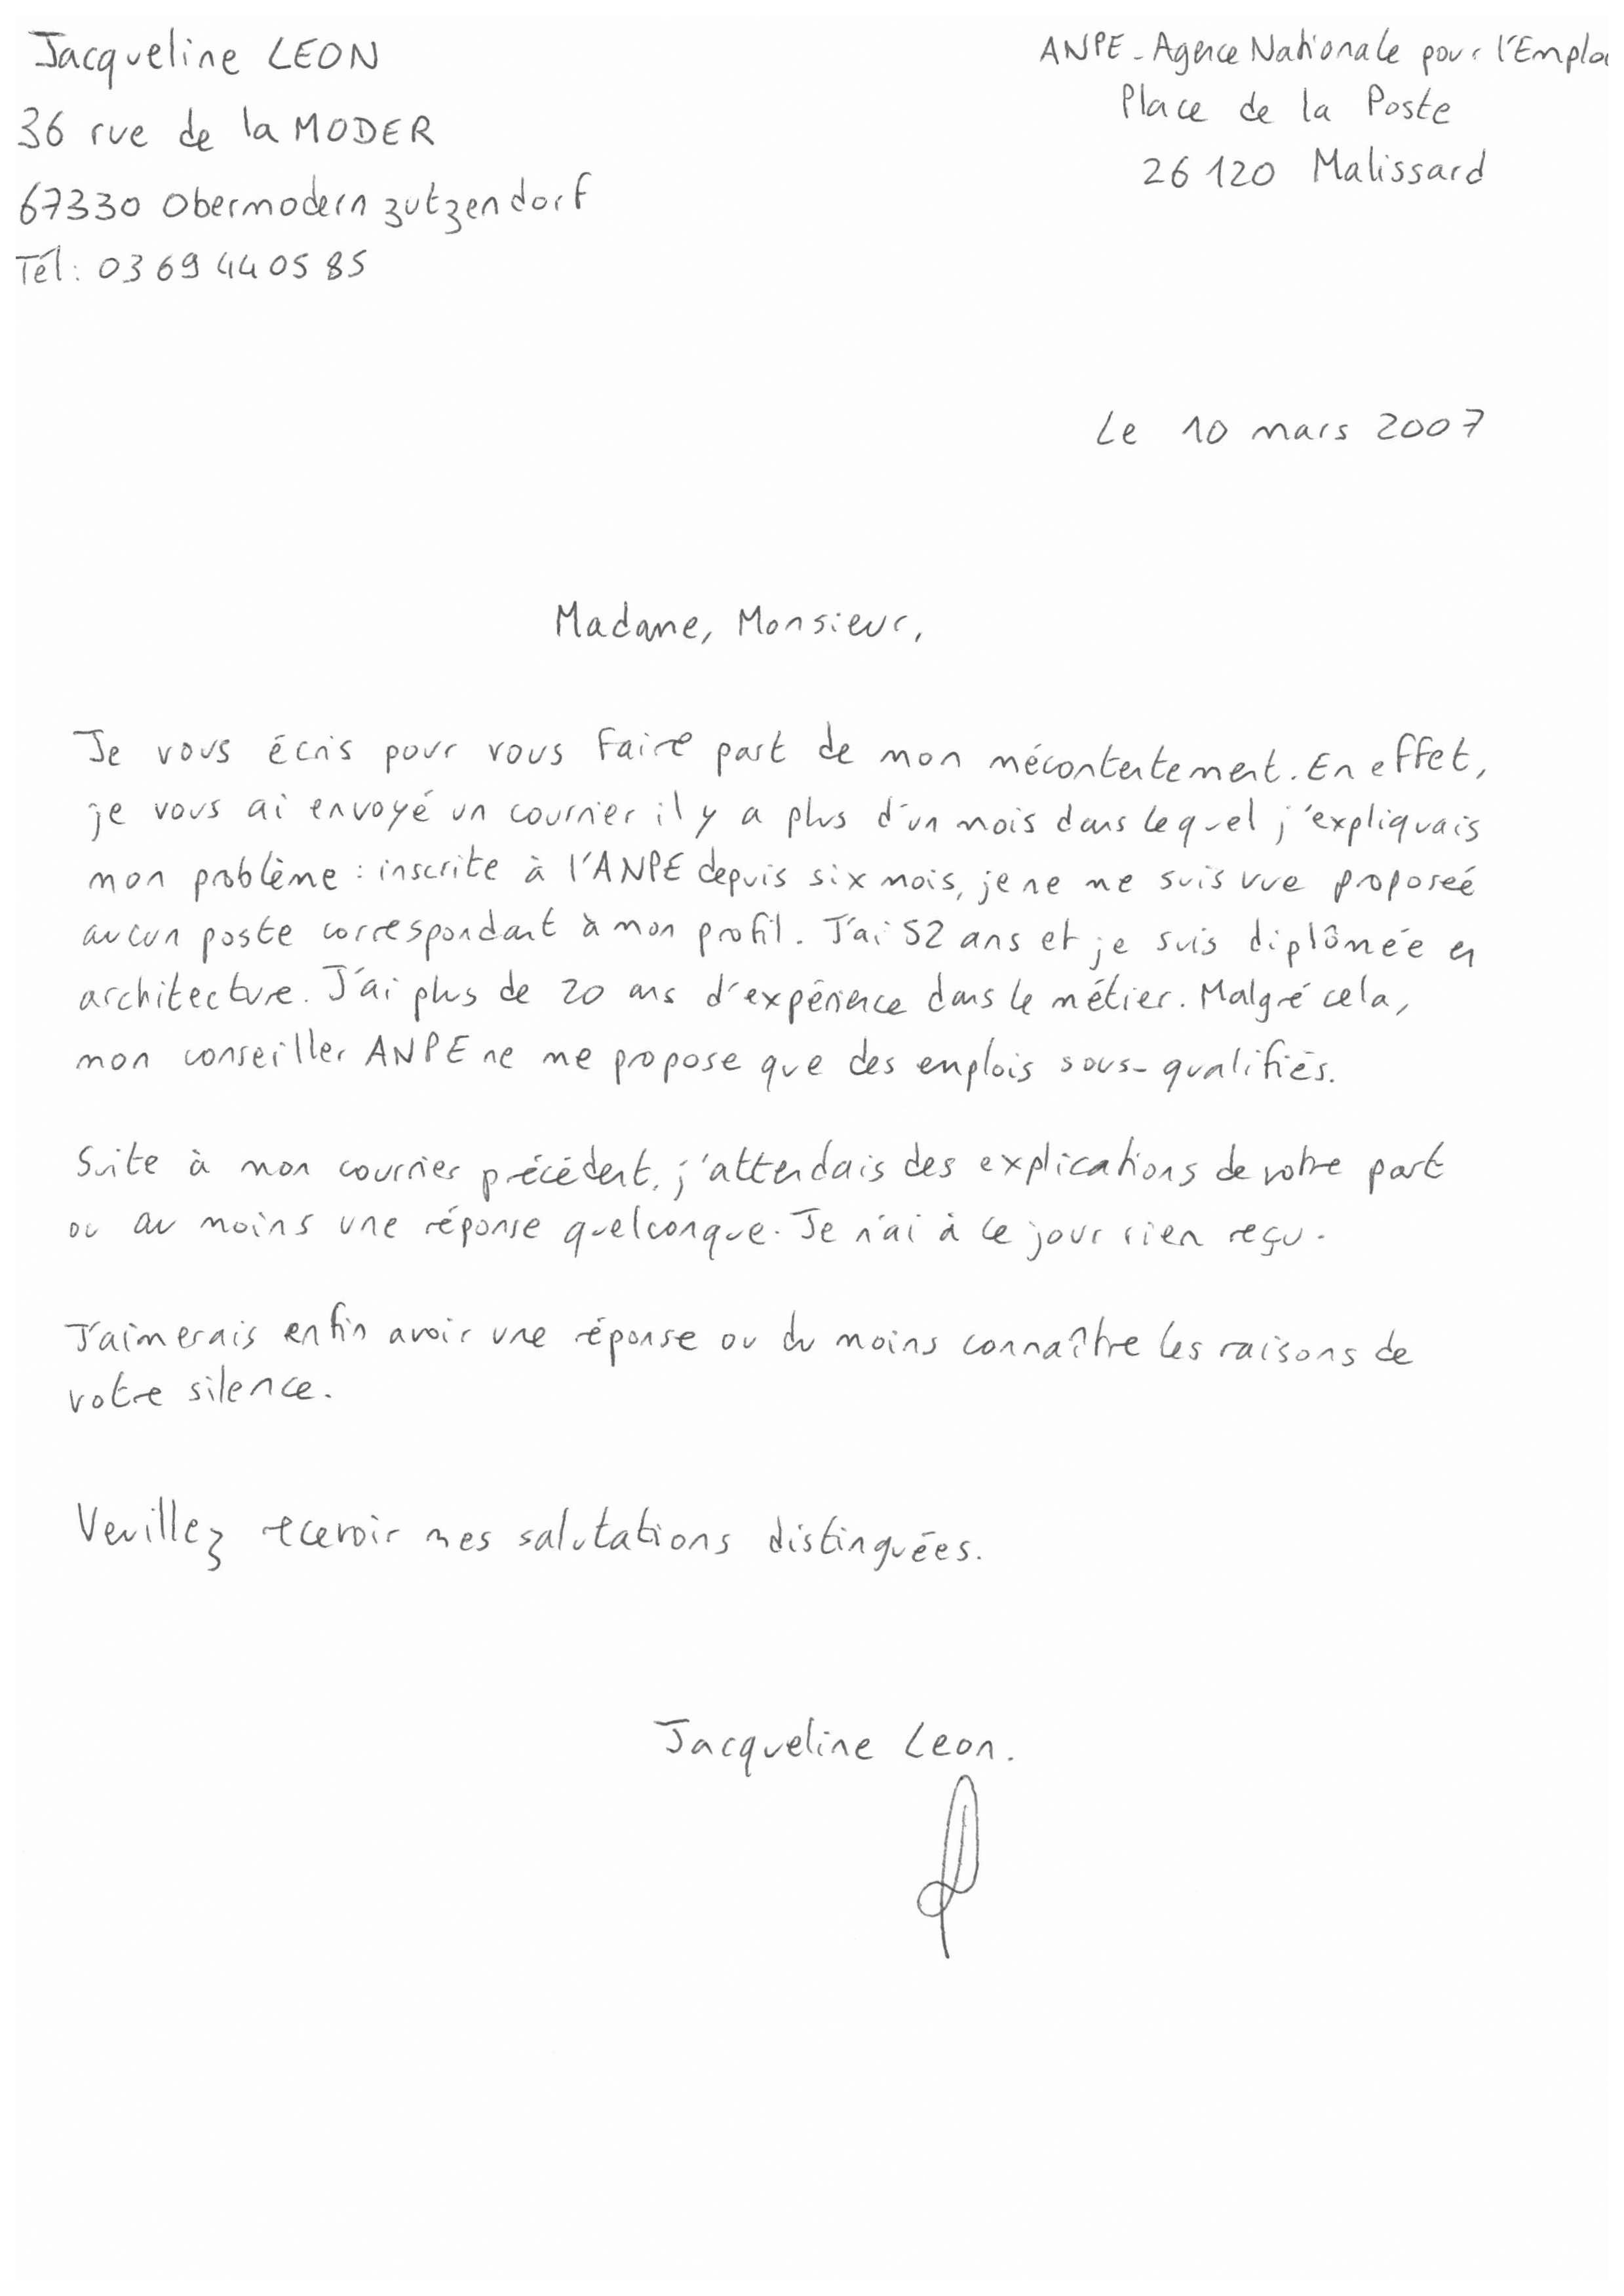 Jacqueline LEON
36 rue de la MODER
67330 Obermodern zutzendorf
Tél : 03 69 44 05 85
ANPE - Agence Nationale pour l'Emploi
Place de la Poste
26 120 Malissard
Le 10 mars 2007
Madame, Monsieur,
Je vous écris pour vous faire part de mon mécontentement. En effet,
je vous ai envoyé un courrier il y a plus d'un mois dans lequel j'expliquais
mon problème : inscrite à l'ANPE depuis six mois, je ne me suis vue proposeé
aucun poste correspondant à mon profil. J'ai 52 ans et je suis diplômée en
architecture. J'ai plus de 20 ans d'expérience dans le métier. Malgré cela,
mon conseiller ANPE ne me propose que des emplois sous-qualifiés.
Suite à mon courrier précédent, j'attendais des explications de votre part
ou au moins une réponse quelconque. Je n'ai à ce jour rien reçu.
J'aimerais enfin avoir une réponse ou du moins connaître les raisons de
votre silence.
Veuillez recevoir mes salutations distinguées.
Jacqueline Leon.